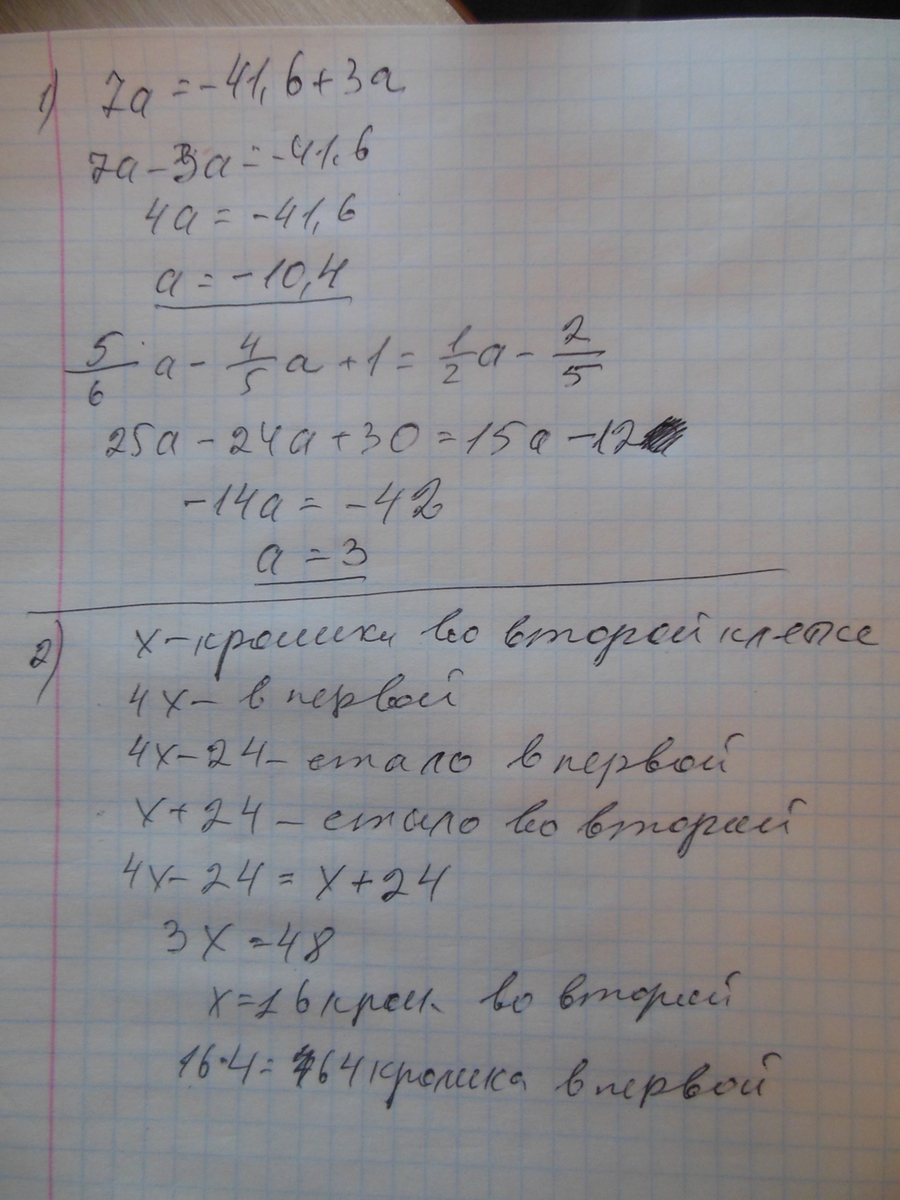 1) 7a = -41,6 + 3a
7a - 3a = -41,6
4a = -41,6
a = -10,4
5/6 a - 4/5 a + 1 = 1/2 a - 2/5
25a - 24a + 30 = 15a - 12
-14a = -42
a = 3
2) x - кролики во второй клетке
4x - в первой
4x - 24 - стало в первой
x + 24 - стало во второй
4x - 24 = x + 24
3x = 48
x = 16 крол. во второй
16·4 = 64 кролика в первой